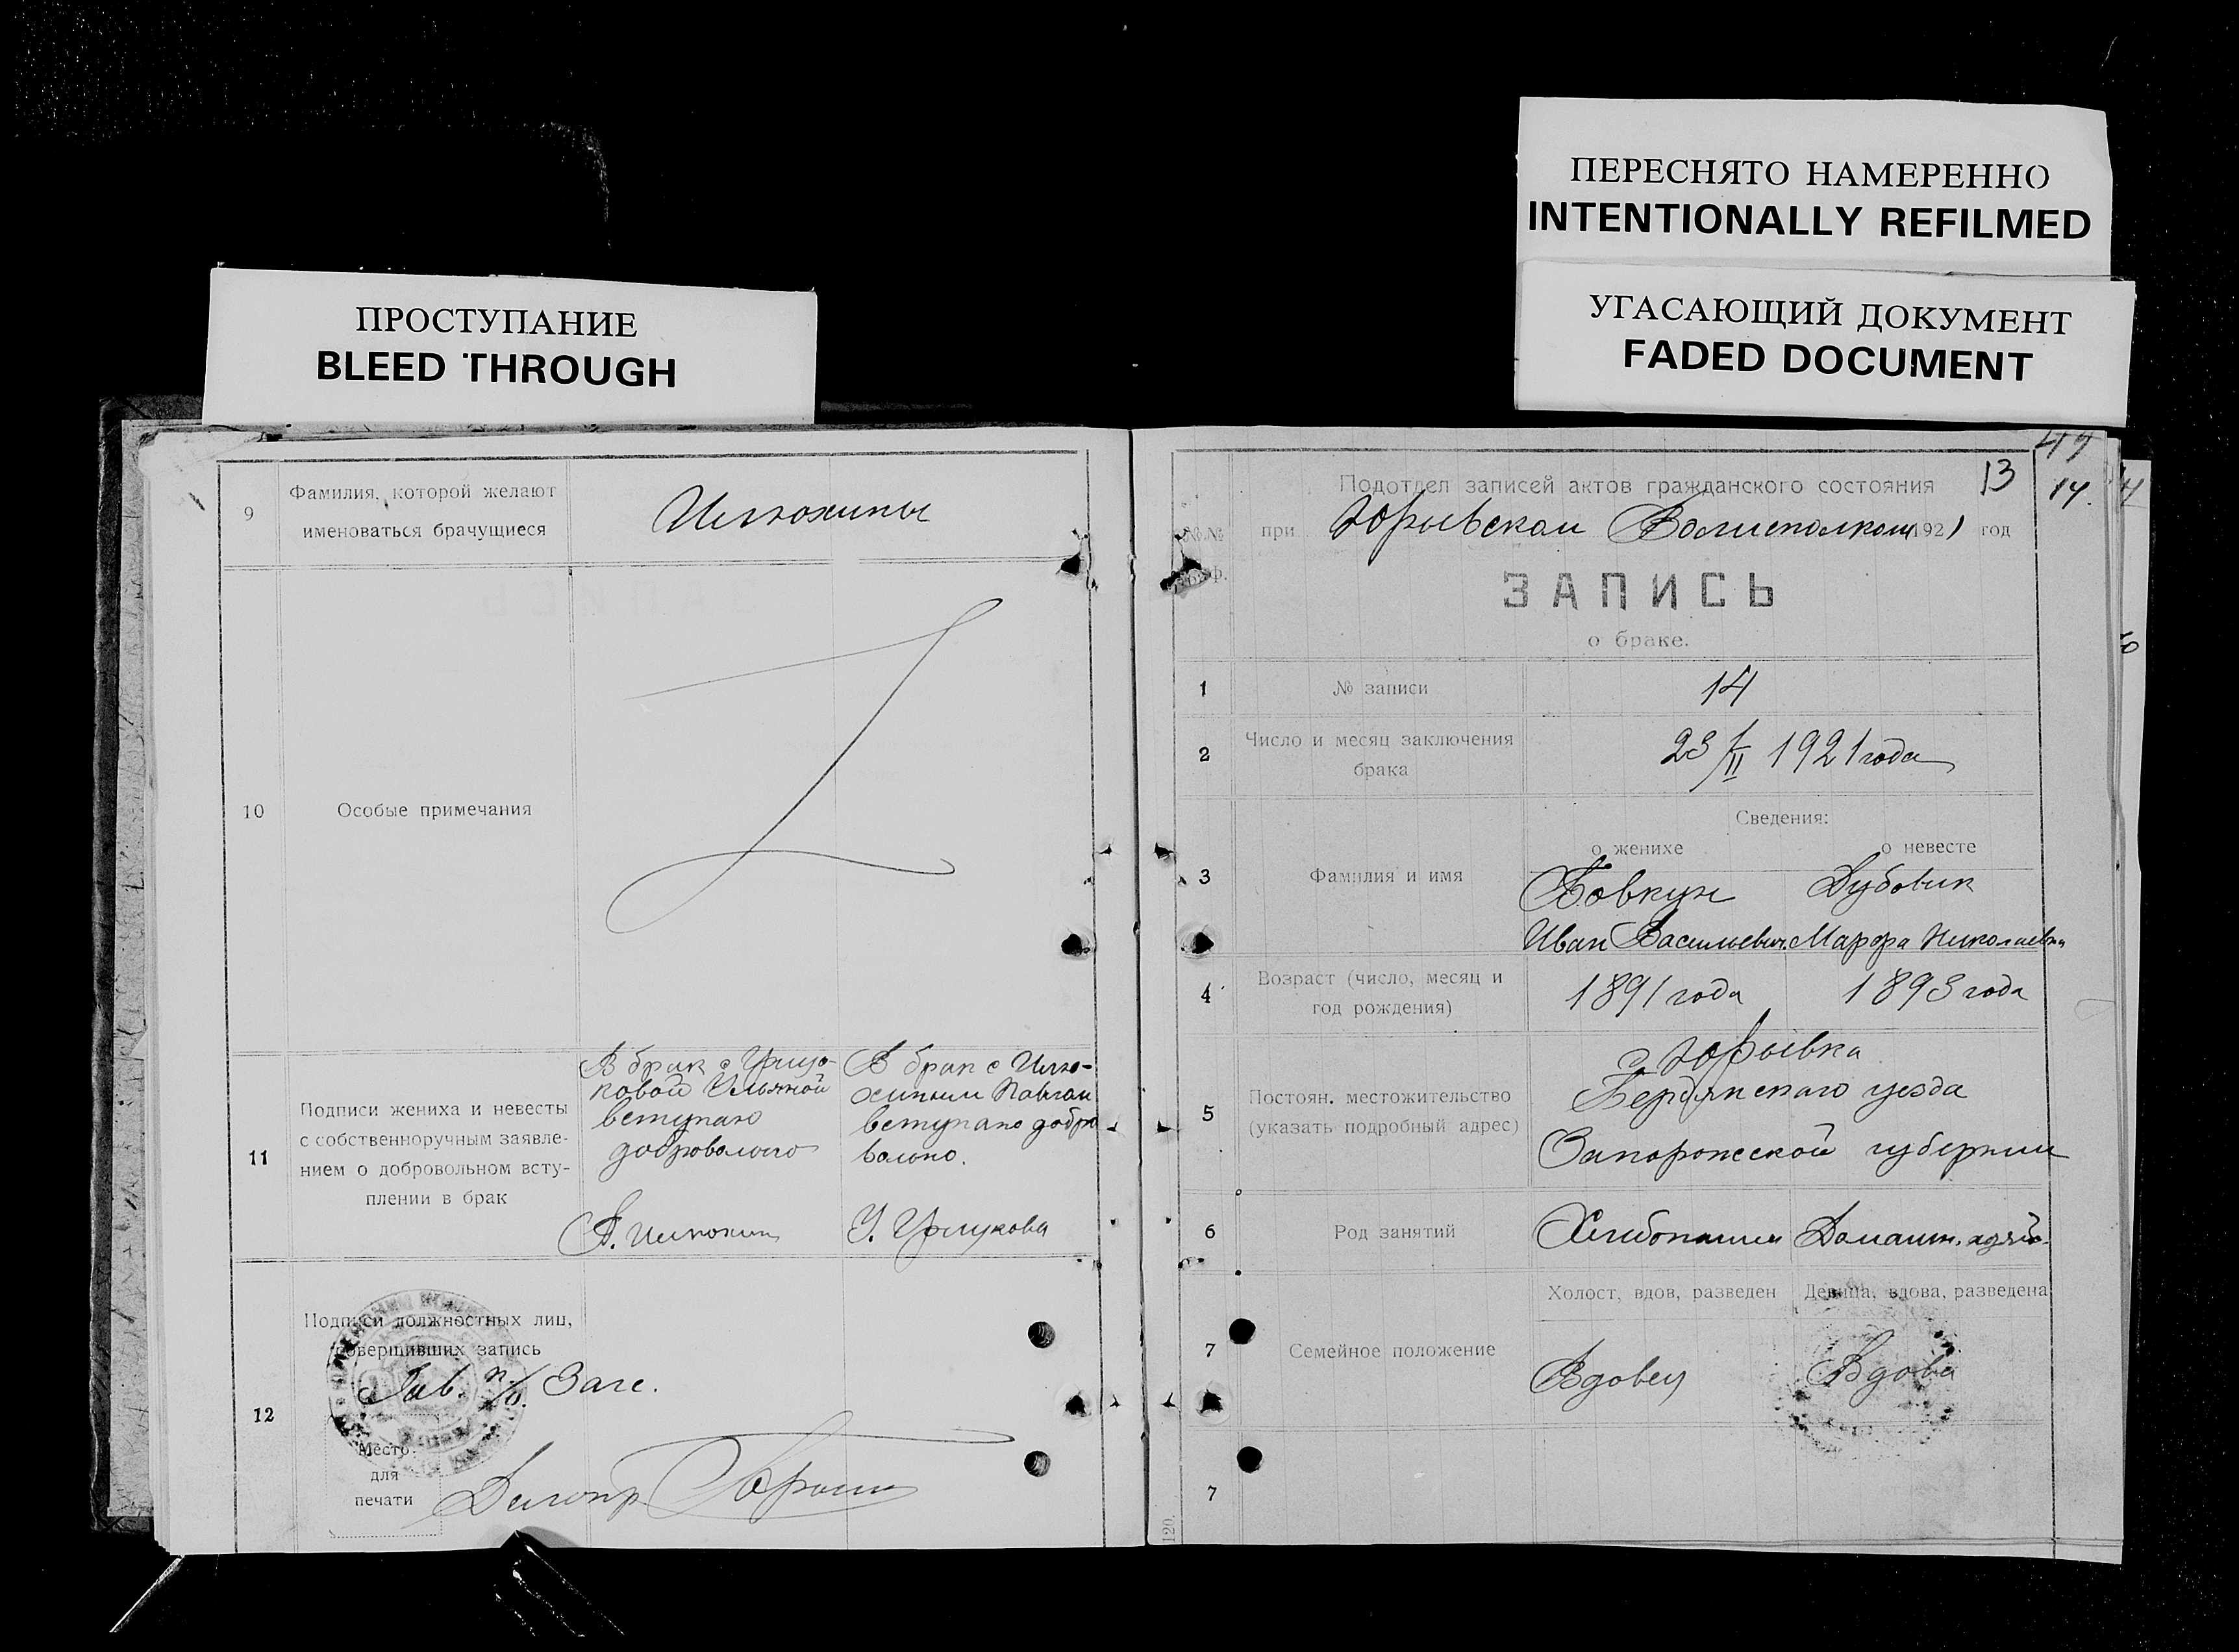 ПЕРЕСНЯТО НАМЕРЕННО
INTENTIONALLY REFILMED
УГАСАЮЩИЙ ДОКУМЕНТ
FADED DOCUMENT
ПРОСТУПАНИЕ
BLEED THROUGH
9
Фамилия, которой желают
именоваться брачущиеся
10
Особые примечания
11
Подписи жениха и невесты
с собственноручным заявле-
нием о добровольном всту-
плении в брак
В брак с
вступаю
добровольно
В брак с Илю-
хиным Павлом
вступаю добро
вольно.
12
Подписи должностных лиц,
совершивших запись
Зав. п/о. Загс.
Место
для
печати
13
14.
Подотдел записей актов гражданского состояния
№№
при Юрьевском Волисполкоме 1921 год
ЗАПИСЬ
о браке.
1
№ записи
14
2
Число и месяц заключения
брака
23/II 1921 года
Сведения:
о женихе
о невесте
3
Фамилия и имя
Бовкун
Дубовик
Иван Васильевич
Марфа Николаевна
4
Возраст (число, месяц и
год рождения)
1891 года
1893 года
5
Постоян. местожительство
(указать подробный адрес)
Бердянского уезда
Запорожской губернии
6
Род занятий
Хлебопашец
Домашн.
7
Семейное положение
Холост, вдов, разведен
Девица, вдова, разведена
Вдовец
Вдова
7
120.